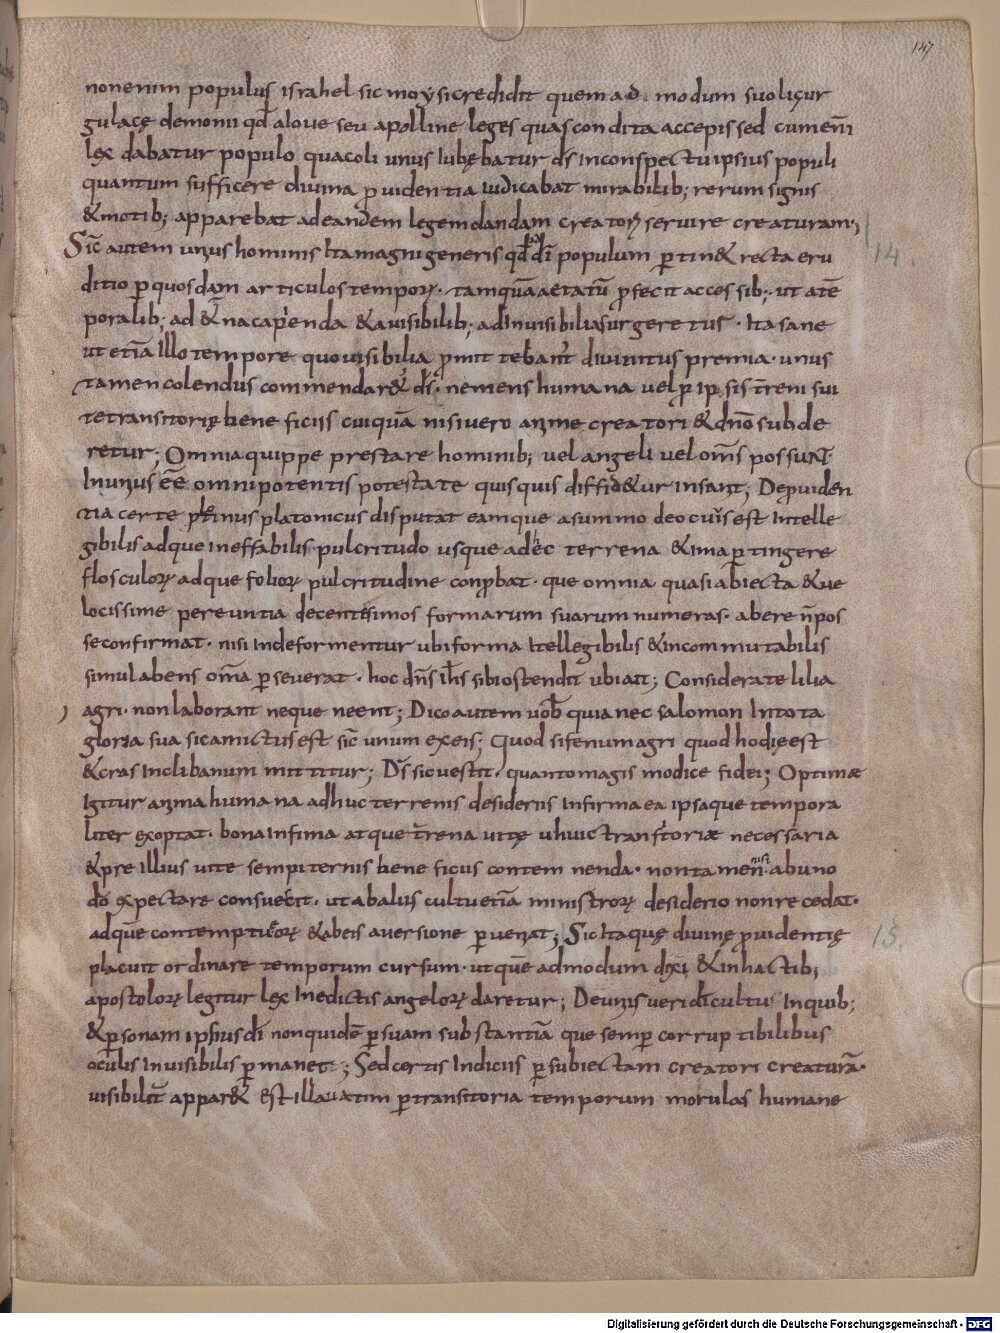 147
nonenim populus israhel sic moysi credidit quem ad modum suo liçur
gulacę demonii qd̄ aloue seu apolline leges quas condita accepis sed cum eni̅
lex dabatur populo qua coli unus Iubębatur ds̄ Inconspectu ipsius populi
quantum sufficere diuina ꝓuidentia iudicabat mirabilib; rerum signis
& motib; apparebat ad eandem legem dandam creatoꝝ seruire creaturam;
Sic̄ autem unius hominis Ita magni generis qd̄ dī populum ꝑtin& recta eru
ditio ꝑ quosdam articulos tempoꝝ· tamquā aetatū ꝓfecit accessib;· ut a tē
poralib; ad &̄na capienda & a uisibilib; ad Inuisibilia surgeretur· Ita sane
ut etiā Illo tempore quo uisibilia ꝓmittebant̄ diuinitus premia· unus
tamen colendus commendar&̄ ds̄· ne mens humana uel ꝑ ipsis tr̄eni sui
te transitorię beneficiis cuiquā nisi uero anime creatori & dn̄o subde
retur; Omnia quippe prestare hominib; uel angeli uel om̄s possunt
In unius ēē omnipotentis potestate quisquis diffid&ur Insanit; De puiden
tia certe plotinus platonicus disputat eamque a summo deo cuīs est Intelle
gibilis adque ineffabilis pulcritudo usque ad ec terrena & ima ꝑtingere
flosculoꝝ adque folioꝝ pulcritudine conꝓbat· que omnia quasi abiecta & ue
locissime pereuntia decentissimos formarum suarum numeros· abere n̄ pos
se confirmat· nisi Inde formentur ubi forma Itellegibilis & incommutabilis
simul abens om̄a ꝑseuerat· hoc dn̄s ih̄s sibi ostendit ubi ait; Considerate lilia
agri· non laborant neque neent; Dico autem uob̄ quia nec salomon In tota
gloria sua sic amictus est sic̄ unum ex eis; Quod si fenum agri quod hodię est
& cras In clibanum mittitur; Ds̄ sic uestit· quanto magis modice fidei; Optimæ
Igitur anima humana adhuc terrenis desideriis Infirma ea ipsaque tempora
liter exoptat· bona infima atque tr̄rena uitę u huic transitoriæ necessaria
& pre illius uite sempiternis beneficus contemnenda· non tamen nisi ab uno
dō expectare consuecit· ut ab alius cultu etiā ministroꝝ desiderio non recedat·
ad quē contemptu eoꝝ & ab eis auersione ꝑuenat; Sic Itaquę diuinę ꝓuidentię
placuit ordinare temporum cursum· ut quē admodum dixi & in hactib;
apostoloꝝ legitur lex In edictis angeloꝝ daretur; De unius ueri dī cultu In quib;
& ꝑsonam ipsius dī non quidē ꝑ suam substantiā que semꝑ corruptibilibus
oculis Inuisibilis ꝑmanet; Sed certis Indiciis ꝑ subiectam creatori creaturā·
uisibilit̄ appar&̄ est illauatim ꝑ transitoria temporum morulas humane
14.
15.
Digitalisierung gefördert durch die Deutsche Forschungsgemeinschaft - DFG